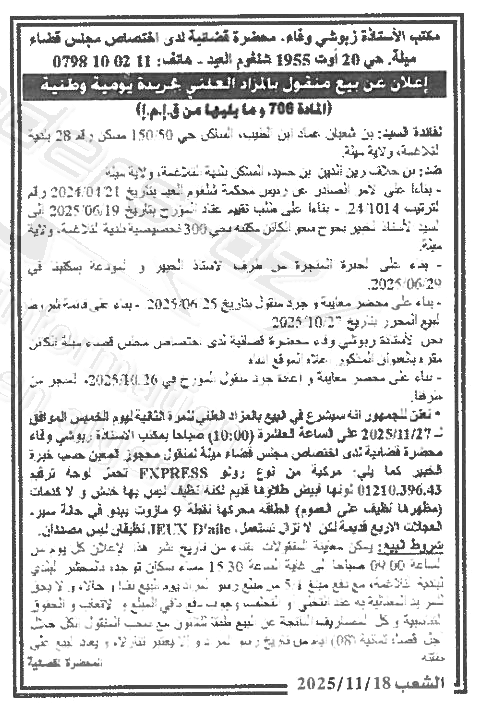 مكتب الأستاذة زبوشي وفاء، محضرة قضائية لدى اختصاص مجلس قضاء
ميلة، حي 20 أوت 1955 شلغوم العيد - هاتف: 11 02 10 0798
إعلان عن بيع منقول بالمزاد العلني بجريدة يومية وطنية
(المادة 706 وما يليها من ق.إ.م.إ)
لفائدة السيد: بن شعبان عماد ابن الطيب، الساكن حي 150/50 مسكن رقم 28 بلدية
التلاغمة، ولاية ميلة.
ضد: بن خلاف زين الدين بن حسيد، الساكن بلدية التلاغمة، ولاية ميلة
- بناءا على الأمر الصادر عن رئيس محكمة شلغوم العيد بتاريخ 2024/04/21 رقم
الترتيب 24/1014. - بناءا على طلب تقييم عتاد المؤرخ بتاريخ 2025/06/19 إلى
السيد الأستاذ الخبير الكائن مكتبه بحي 300 تخصيصية بلدية التلاغمة، ولاية
ميلة.
- بناء على الخبرة المنجزة من طرف الأستاذ الخبير و المودعة بمكتبه في
2025/06/29.
- بناء على محضر معاينة و جرد منقول بتاريخ 2025/06/25 - بناء على قائمة شروط
البيع المحرر بتاريخ 2025/10/27
نحن الأستاذة زبوشي وفاء محضرة قضائية لدى اختصاص مجلس قضاء ميلة الكائن
مقره بالعنوان المذكور أعلاه الموقع أدناه
- بناء على محضر معاينة و إعادة جرد منقول المؤرخ في 2025/10/26، المنجز من
طرفنا.
- نعلن للجمهور أنه سيشرع في البيع بالمزاد العلني للمرة الثانية ليوم الخميس الموافق
لـ 2025/11/27 على الساعة العاشرة (10:00) صباحا بمكتب الأستاذة زبوشي وفاء
محضرة قضائية لدى اختصاص مجلس قضاء ميلة لمنقول محجوز المعين حسب خبرة
الخبير كما يلي: مركبة من نوع رونو EXPRESS تحمل لوحة ترقيم
01210.396.43 لونها أبيض طلاؤها قديم لكنه نظيف ليس بها خدش و لا كدمات
(مظهرها نظيف على العموم) الطاقة محركها نفطة 9 مازوت يبدو في حالة سير،
العجلات الأربع قديمة لكن لا تزال تستعمل، JEUX D'aile نظيفان ليس مصدئان.
شروط البيع: يمكن معاينة المنقولات ابتداء من تاريخ نشر هذا الإعلان كل يوم من
الساعة 09.00 صباحا إلى غاية الساعة 15.30 مساء بمكان تواجده بالمحشر البلدي
لبلدية التلاغمة، مع دفع مبلغ من مبلغ رسو المزاد يوم البيع نقدا و حالا، و لا يحق
و كل المصاريف الناتجة عن البيع طبقا للقانون مع سحب المنقول
أجل أقصاه ثمانية (08) أيام من تاريخ رسو المزاد و إلا يعتبر تنازلا، و يعاد البيع على
المحضرة القضائية
الشعب 2025/11/18